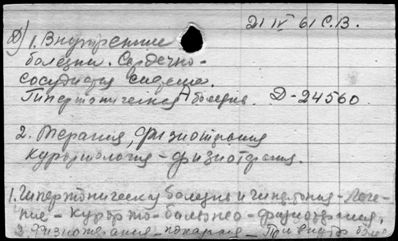 21 IV 61 С.В.
1. Внутренние
болезни. Сердечно-
сосудистая система.
Гипертоническая болезнь. Д-24560
2. Терапия, физиотерапия
Курортология - физиотерапия.
1. Гипертоническая болезнь и гипотония - Лече-
ние - Курорто-бальнео-физиотерапия.
2. Физиотерапия - - При внутр. бол.